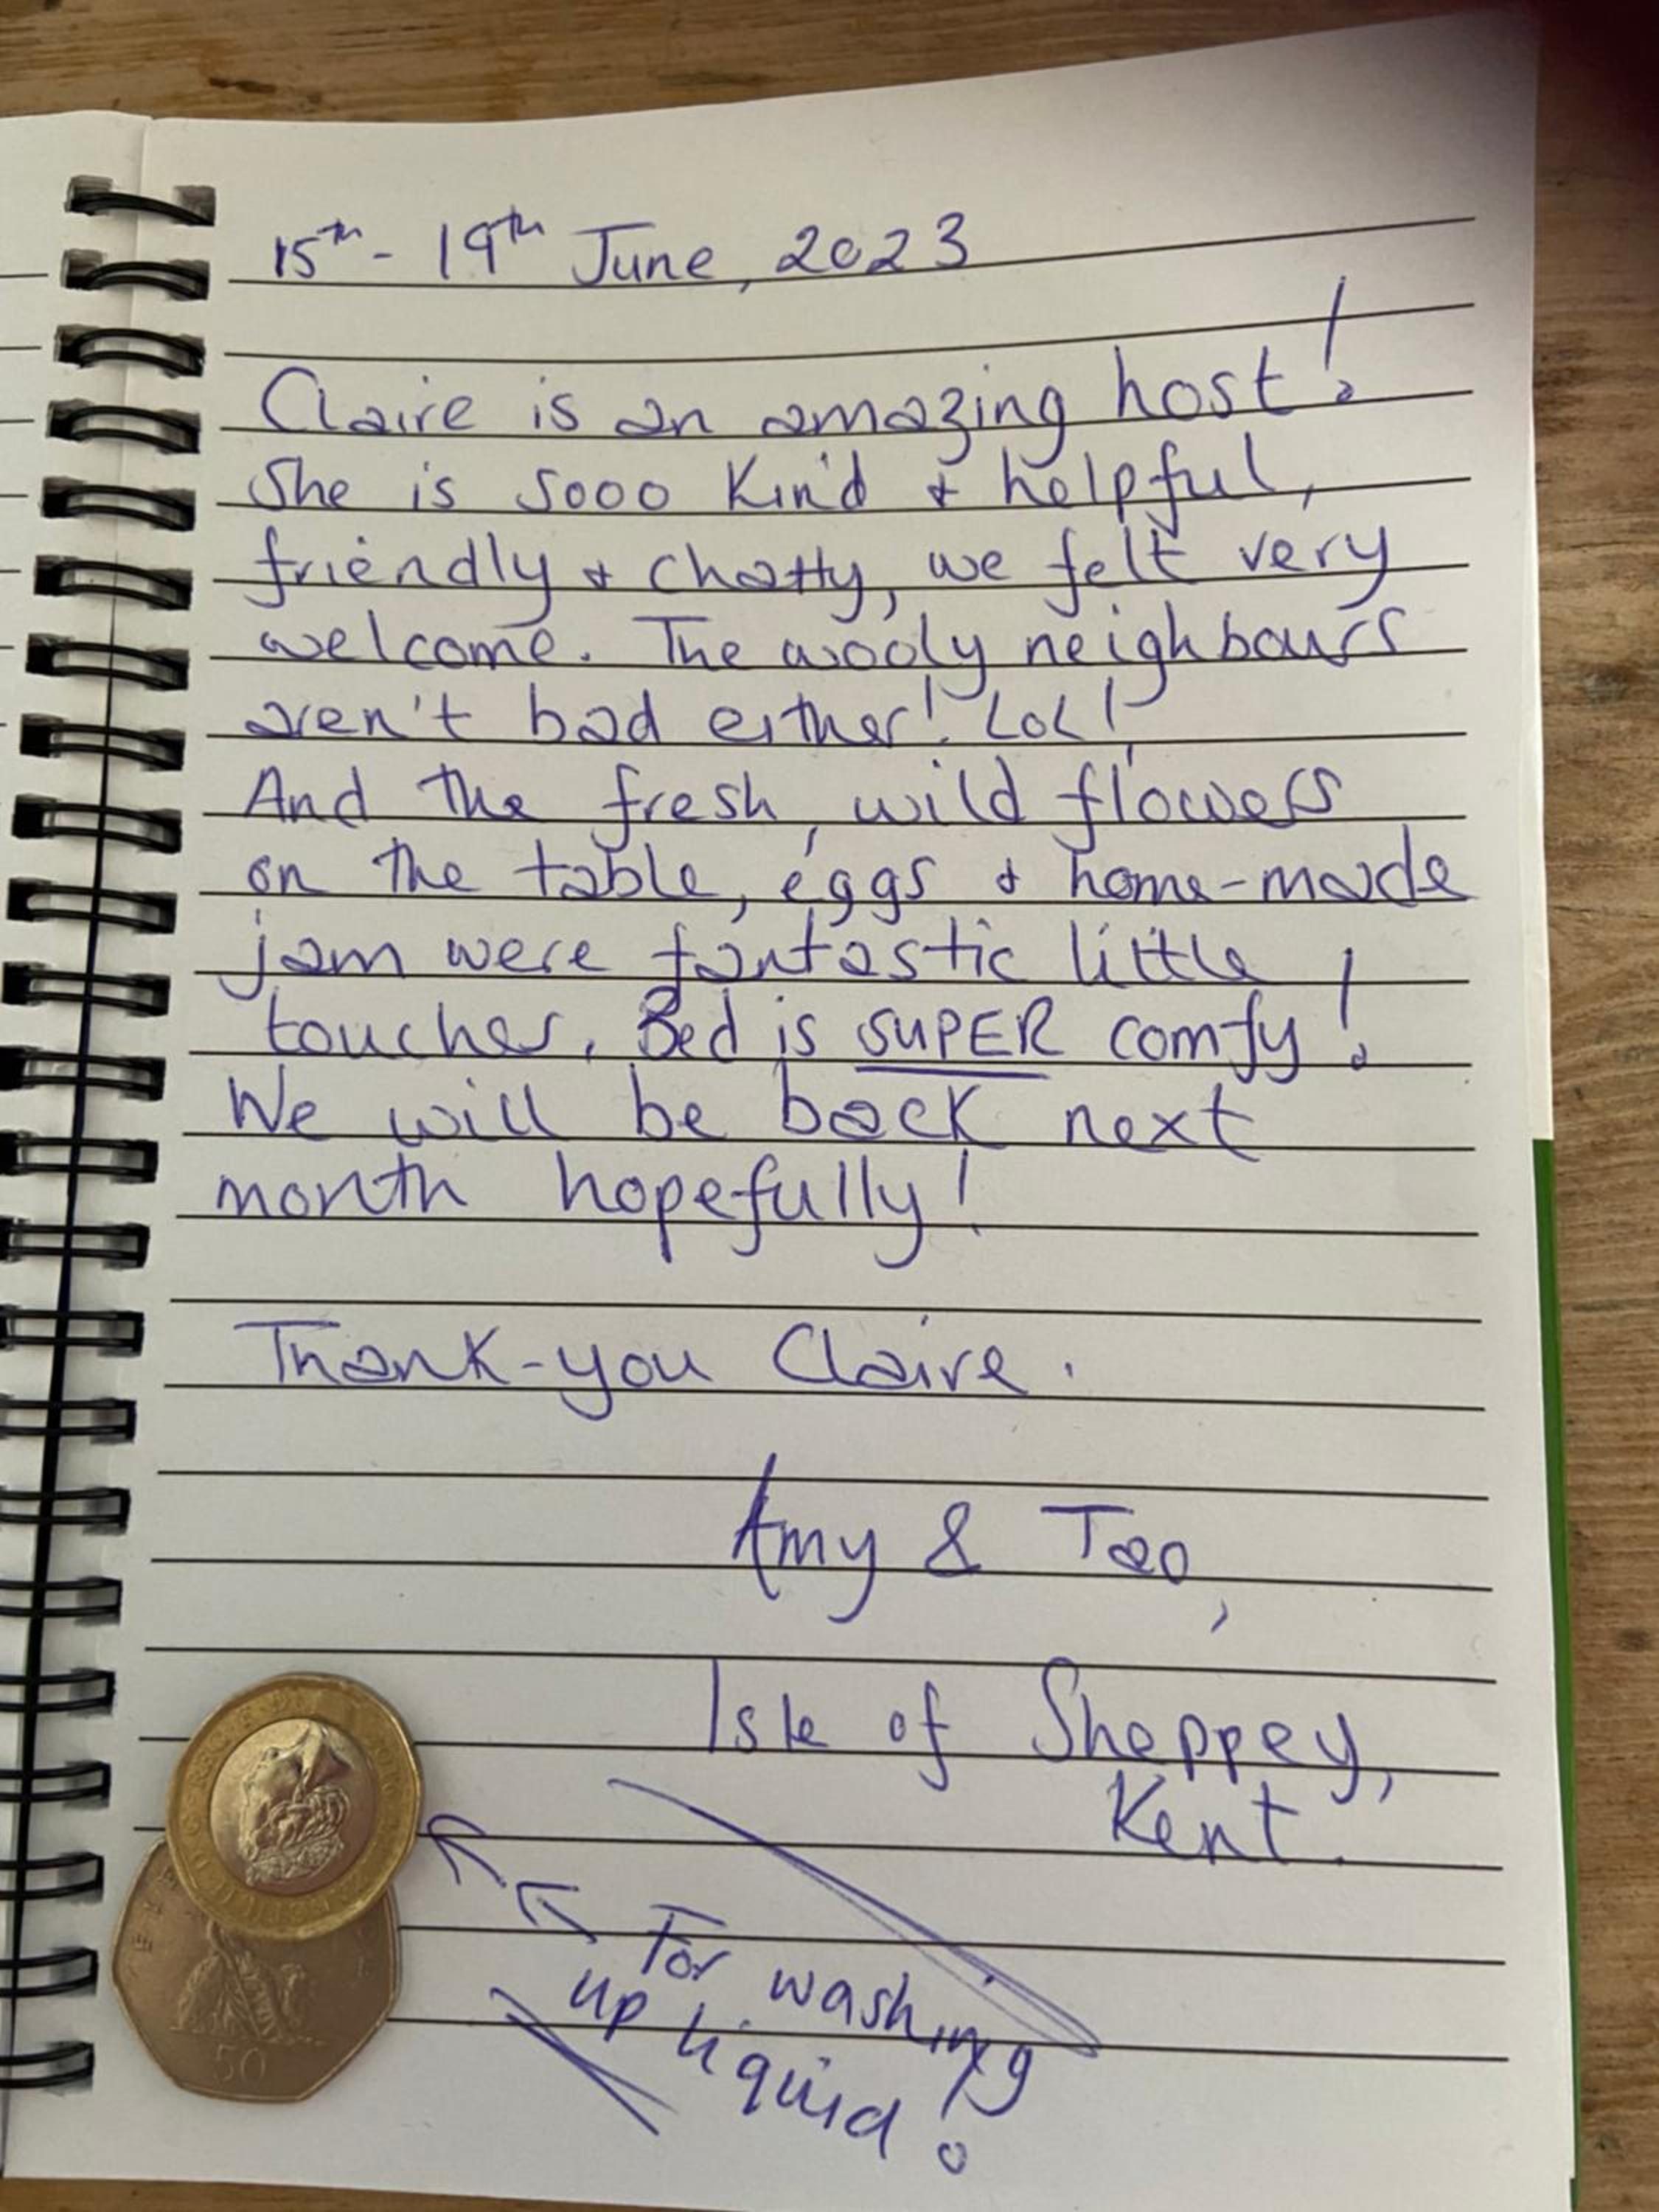 15th - 19th June, 2023
Claire is an amazing host!
She is sooo kind & helpful,
friendly & chatty, we felt very
welcome. The wooly neighbours
aren't bad either! LOL!
And the fresh, wild flowers
on the table, eggs & home-made
jam were fantastic little
touches. Bed is SUPER comfy!
We will be back next
month hopefully!
Thank-you Claire.
Amy & Tao,
Isle of Sheppey,
Kent.
For washing
up liquid!
50